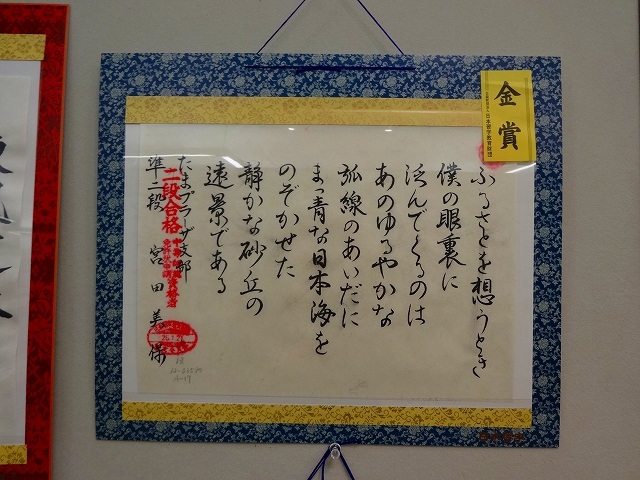 金賞
日本習字教育財団
ふるさとを想うとき
僕の眼裏に
泛んでくるのは
あのゆるやかな
弧線のあいだに
まっ青な日本海を
のぞかせた
静かな砂丘の
遠景である
たまプラーザ支部
二段合格
準二段 宮田美保